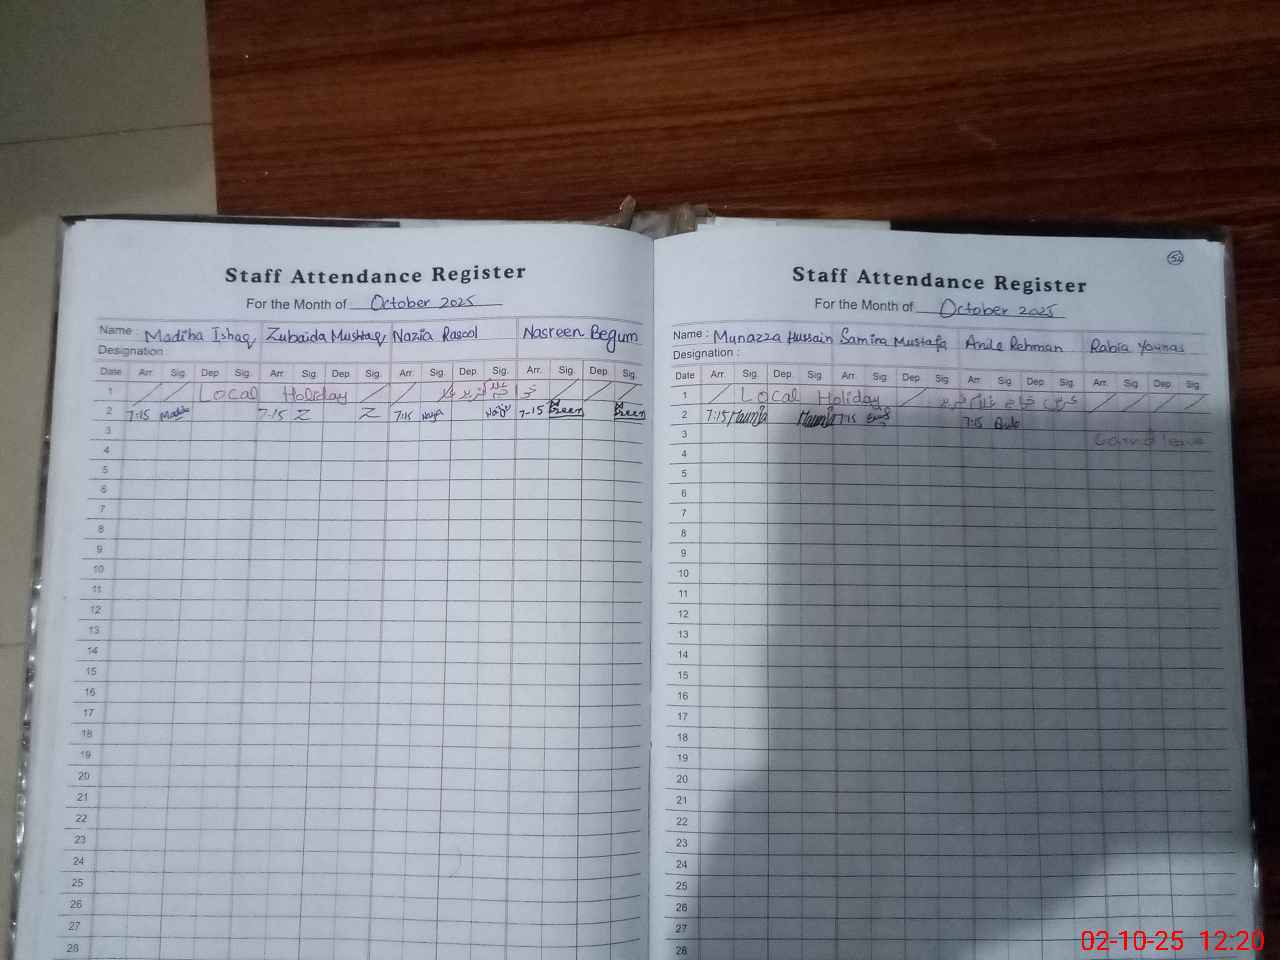 Staff Attendance Register
For the Month of October 2025
Name : Madiha Ishaq Zubaida Mushtaq Nazia Rasool Nasreen Begum
Designation :
Date Arr. Sig. Dep. Sig. Arr. Sig. Dep. Sig. Arr. Sig. Dep. Sig. Arr. Sig. Dep. Sig.
1 Local Holiday
2 7:15 Madiha 7-15 Z Z 7:15 7-15
3
4
5
6
7
8
9
10
11
12
13
14
15
16
17
18
19
20
21
22
23
24
25
26
27
28
54
Staff Attendance Register
For the Month of October 2025
Name : Munazza Hussain Samina Mustafa Anila Rehman Rabia Younas
Designation :
Date Arr. Sig. Dep. Sig. Arr. Sig. Dep. Sig. Arr. Sig. Dep. Sig. Arr. Sig. Dep. Sig.
1 Local Holiday
2 7:15 7:15 7:15
3 leave
4
5
6
7
8
9
10
11
12
13
14
15
16
17
18
19
20
21
22
23
24
25
26
27
28
02-10-25 12:20